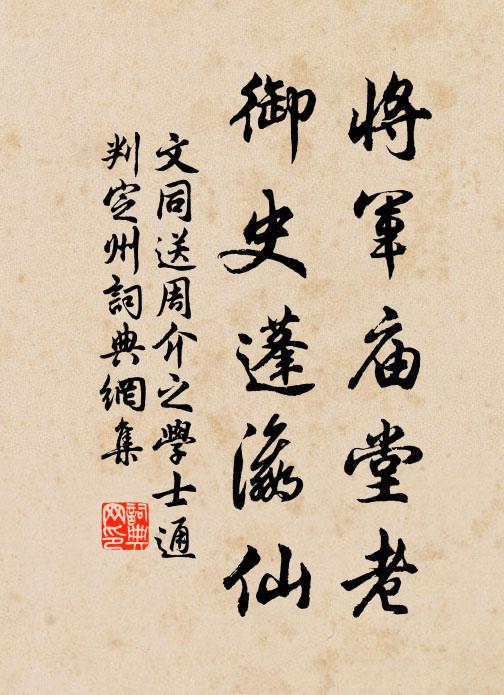 將軍庙堂老
御史蓬瀛仙
文同送周介之學士通
判定州詞典網集
詞典
网印